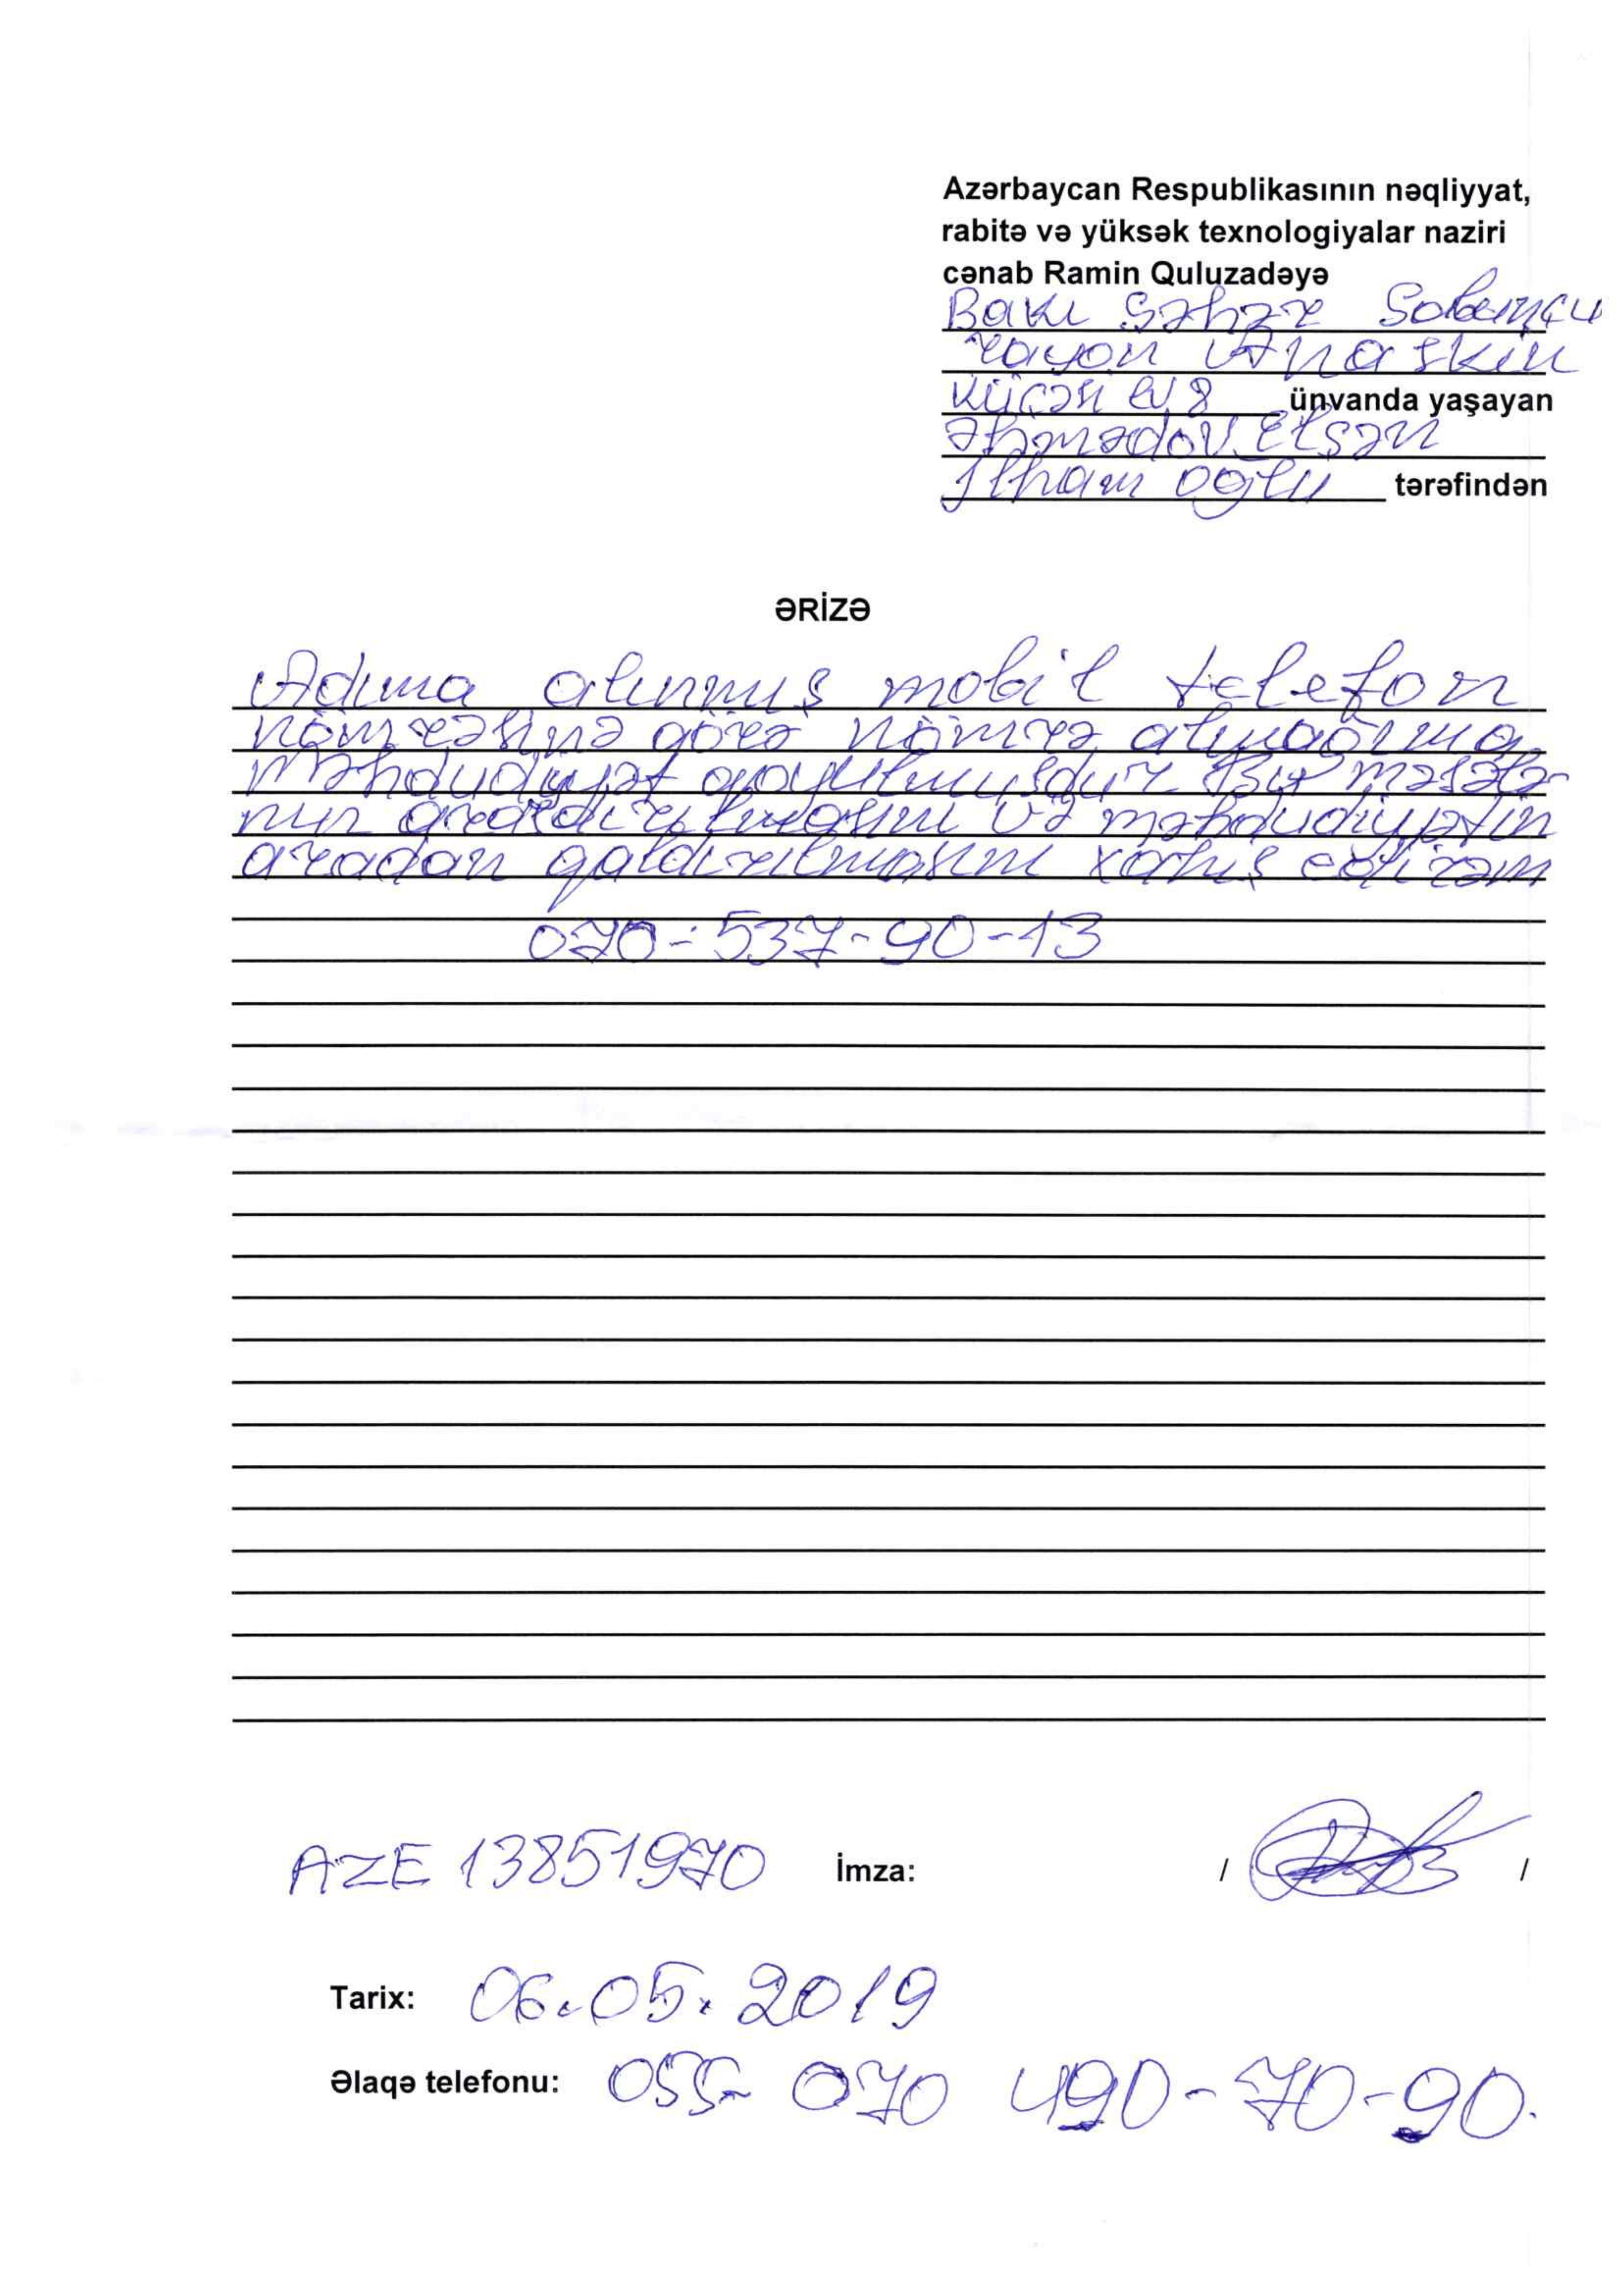 Azərbaycan Respublikasının nəqliyyat,
rabitə və yüksək texnologiyalar naziri
cənab Ramin Quluzadəyə
Bakı Şəhər Sabunçu
rayon
küçəsi ev 8 ünvanda yaşayan
Əhmədov Elşən
İlham oğlu tərəfindən
ƏRİZƏ
Adıma alınmış mobil telefon
nömrəsinə görə nömrə alınağıma
məhdudiyyət qoyulmuşdur. Bu məsələ-
nin araşdırılmasını və məhdudiyyətin
aradan qaldırılmasını xahiş edirəm
070-537-90-13
AZE 13851970 İmza: / /
Tarix: 06.05.2019
Əlaqə telefonu: 055- 070 490-70-90.